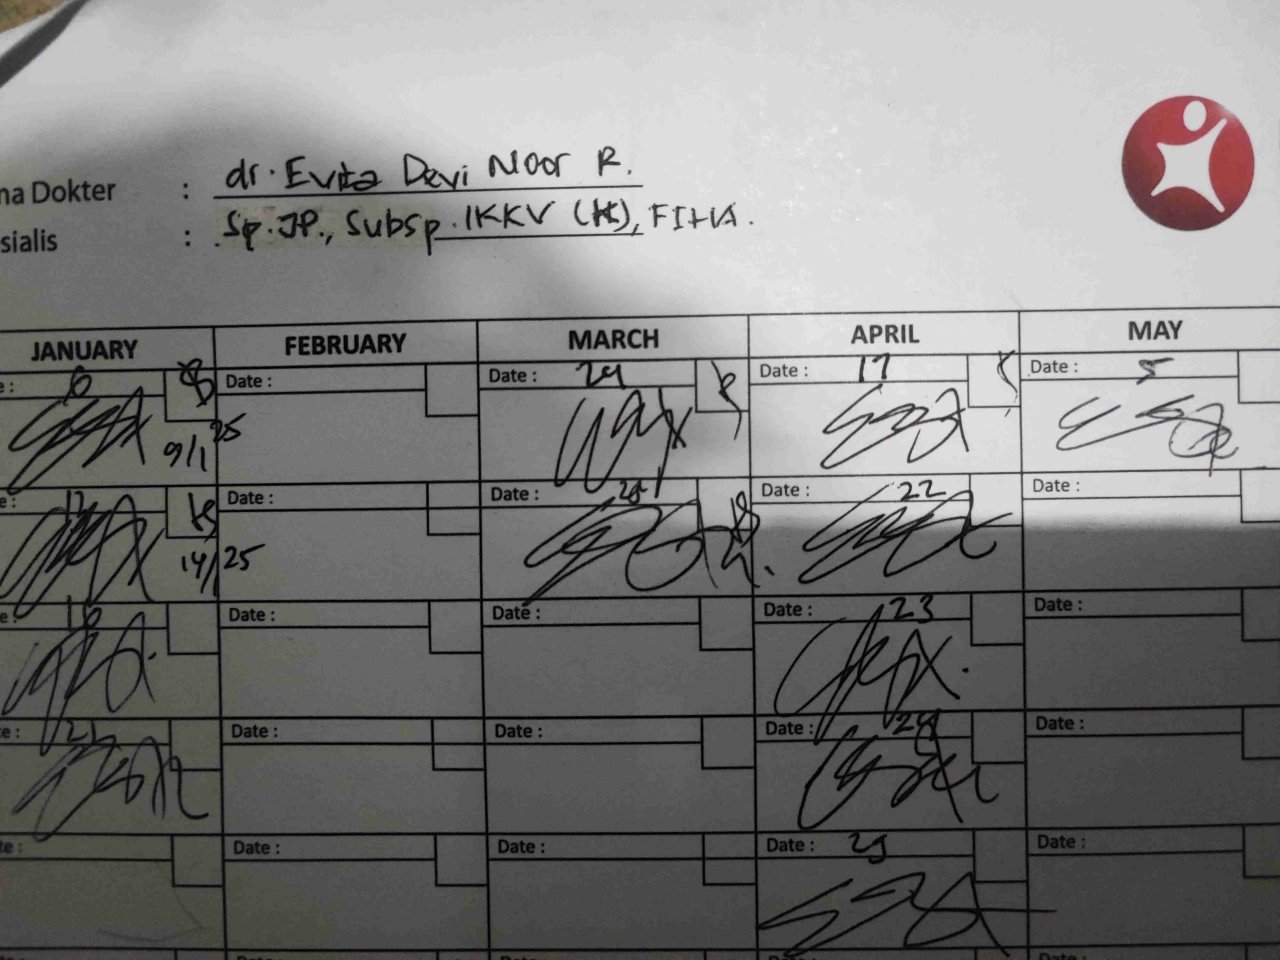 na Dokter : dr. Evita Devi Noor R.
sialis : Sp.JP., Subsp. IKKV (K), FIHA.
JANUARY FEBRUARY MARCH APRIL MAY
e : 6 Date : Date : 24 Date : 17 Date : 5
9/1 25
e : Date : Date : Date : 22 Date :
14/ 25
e : Date : Date : Date : 23 Date :
e : 21 Date : Date : Date : Date :
te : Date : Date : Date : Date :